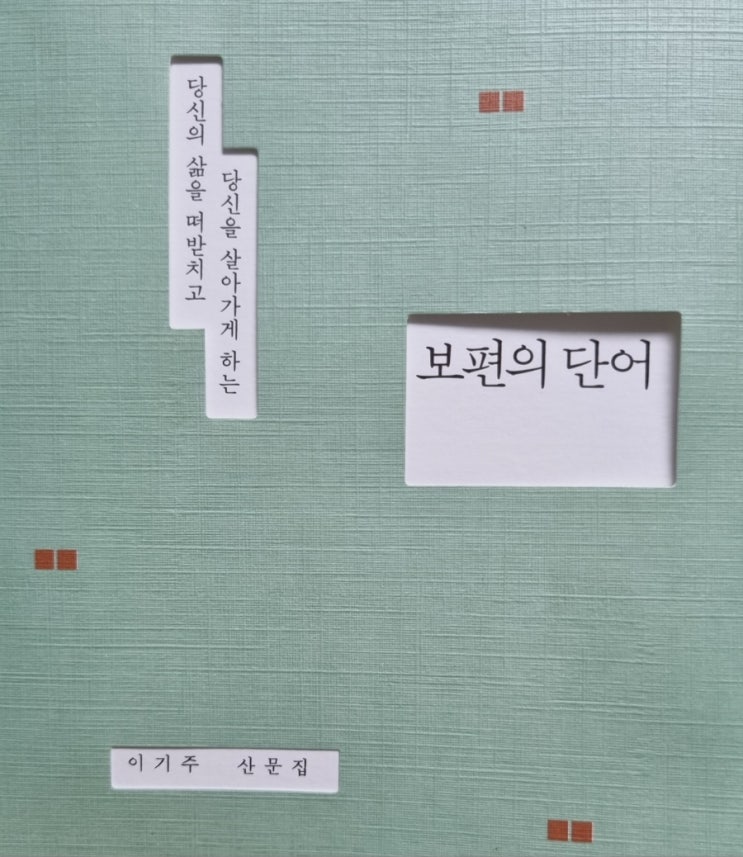 당신의 삶을 떠받치고
당신을 살아가게 하는
보편의 단어
이기주 산문집